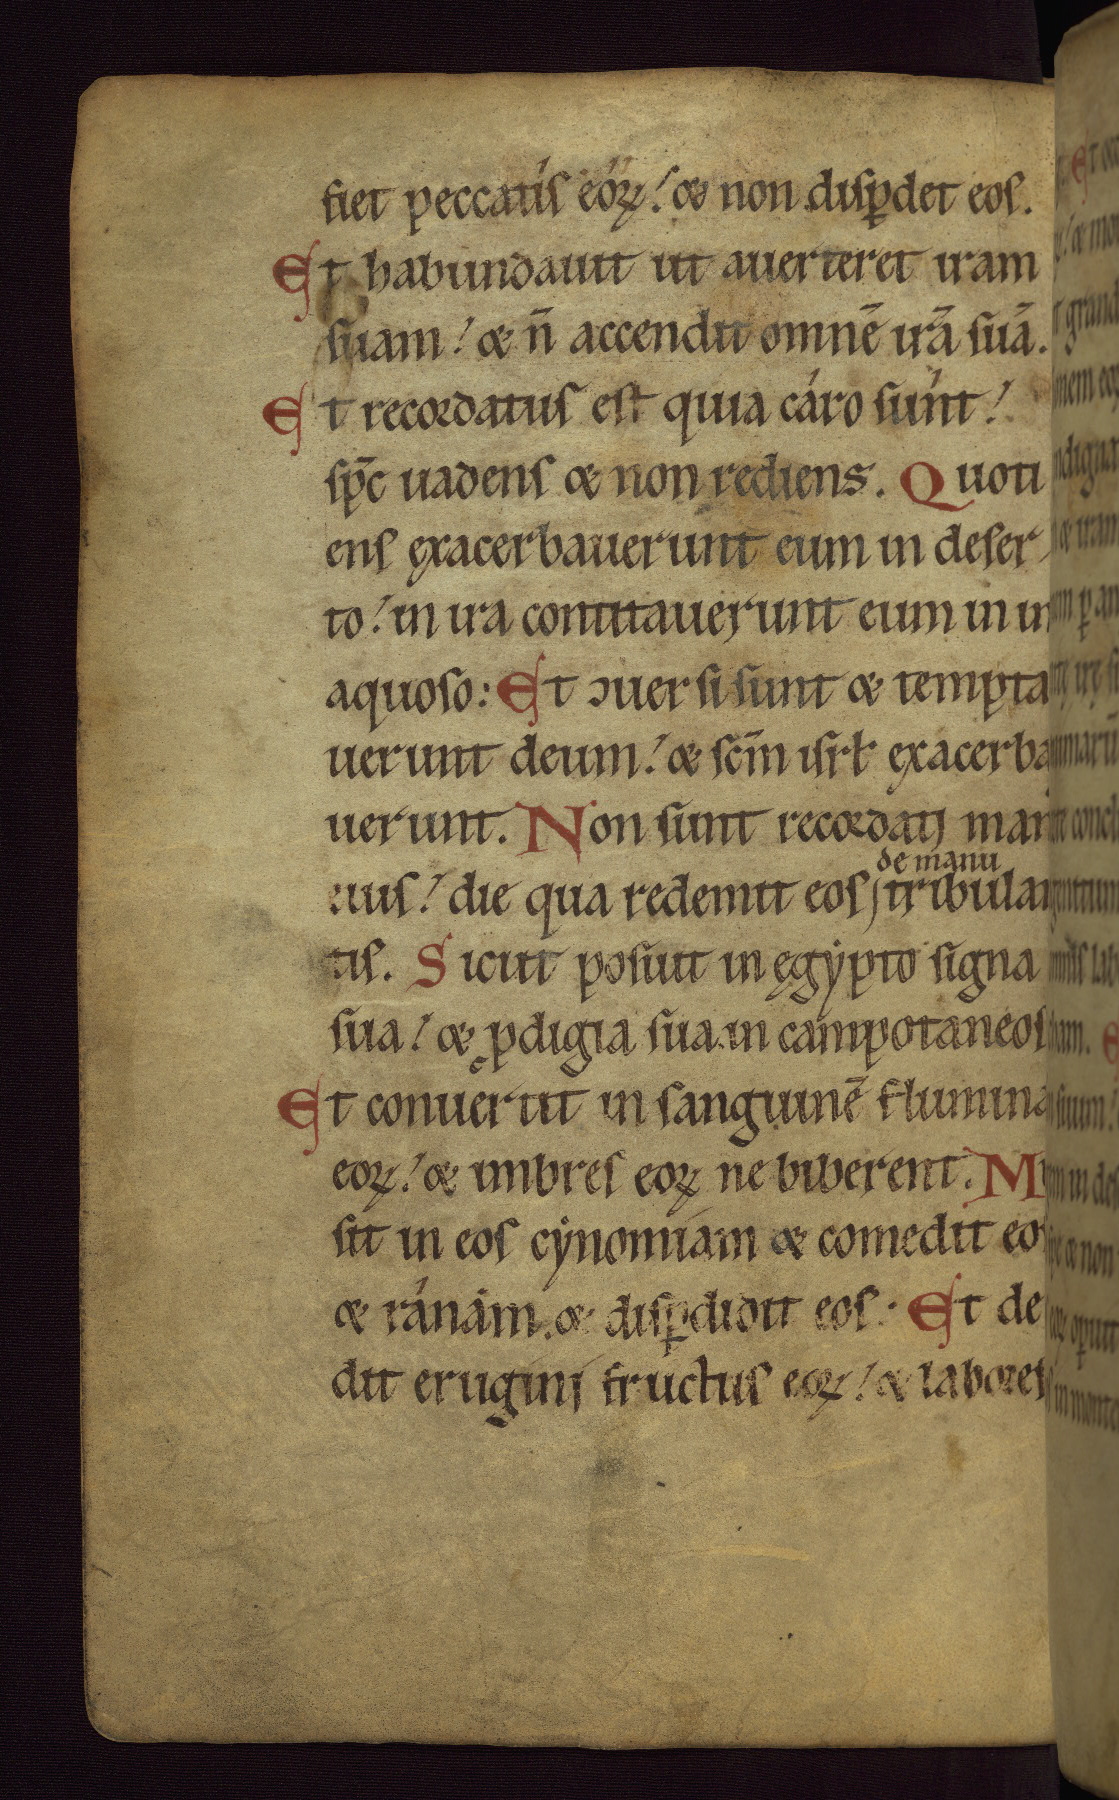 fiet peccatis eoꝝ! & non disꝑdet eos.
Et habundauit ut auerteret iram
suam! & n̄ accendit omnē irā suā.
Et recordatus est quia caro sunt!
sp̄c uadens & non rediens. Quoti
ens exacerbauerunt eum in deser
to! in ira concitauerunt eum in in
aquoso: Et ↄuersi sunt & tempta
uerunt deum! & sc̄m isrł exacerba
uerunt. Non sunt recordati man
de manu
uius! die qua redemit eos tribulan
tis. Sicut posuit in ęgypto signa
sua! & ꝓdigia sua in campotaneos
Et conuertit in sanguinē flumina
eoꝝ! & imbres eoꝝ ne biberent. Mi
sit in eos cynomiam & comedit eos
& ranam. & disꝑdidit eos. Et de
dit erugini fructus eoꝝ! & labores